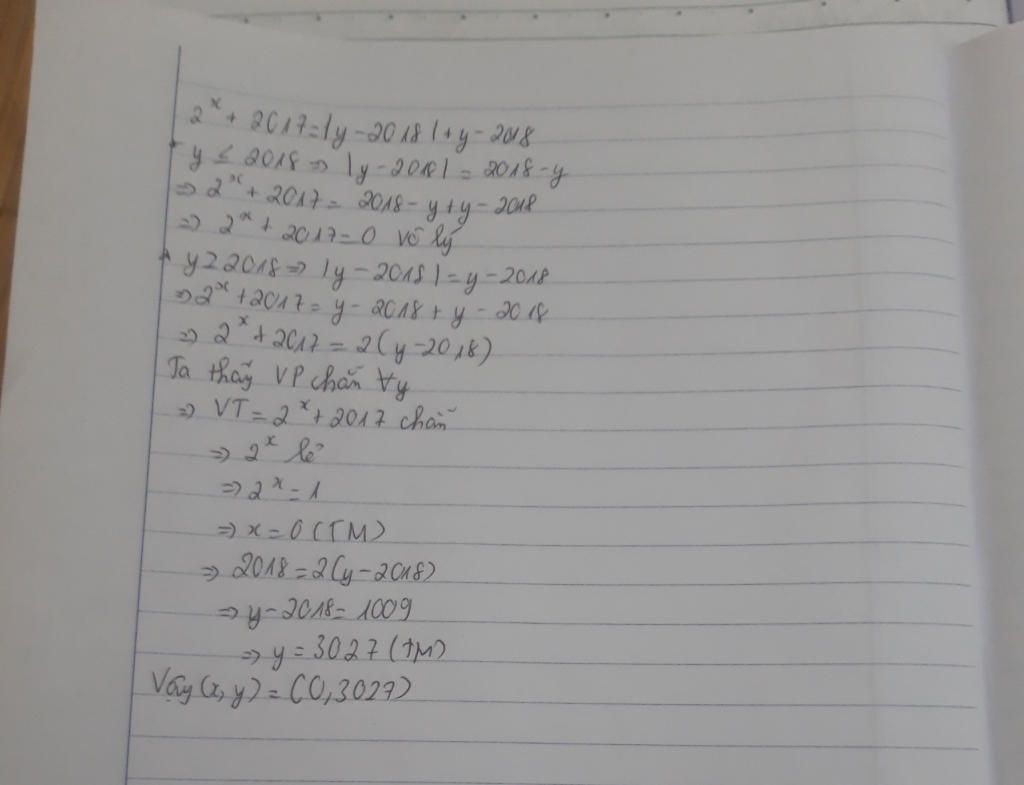 2^x + 2017 = |y - 2018| + y - 2018
* y ≤ 2018 ⇒ |y - 2018| = 2018 - y
⇒ 2^x + 2017 = 2018 - y + y - 2018
⇒ 2^x + 2017 = 0 vô lý
* y ≥ 2018 ⇒ |y - 2018| = y - 2018
⇒ 2^x + 2017 = y - 2018 + y - 2018
⇒ 2^x + 2017 = 2(y - 2018)
Ta thấy VP chẵn ∀y
⇒ VT = 2^x + 2017 chẵn
⇒ 2^x lẻ
⇒ 2^x = 1
⇒ x = 0 (TM)
⇒ 2018 = 2(y - 2018)
⇒ y - 2018 = 1009
⇒ y = 3027 (TM)
Vậy (x, y) = (0, 3027)